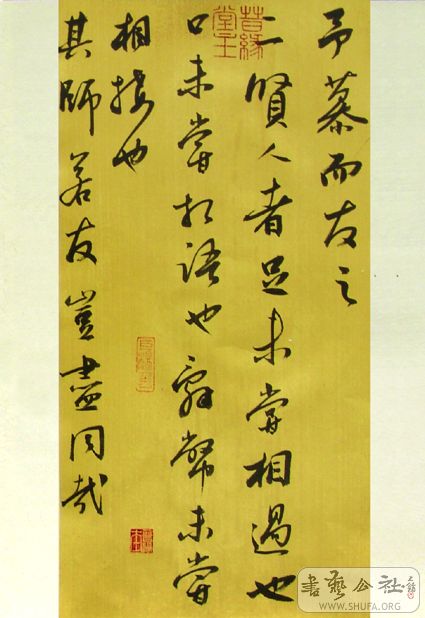 予慕而友之
二賢人者足未嘗相過也
口未嘗相語也辭幣未嘗
相接也
其師若友豈盡同哉
書藝公社
WWW.SHUFA.ORG